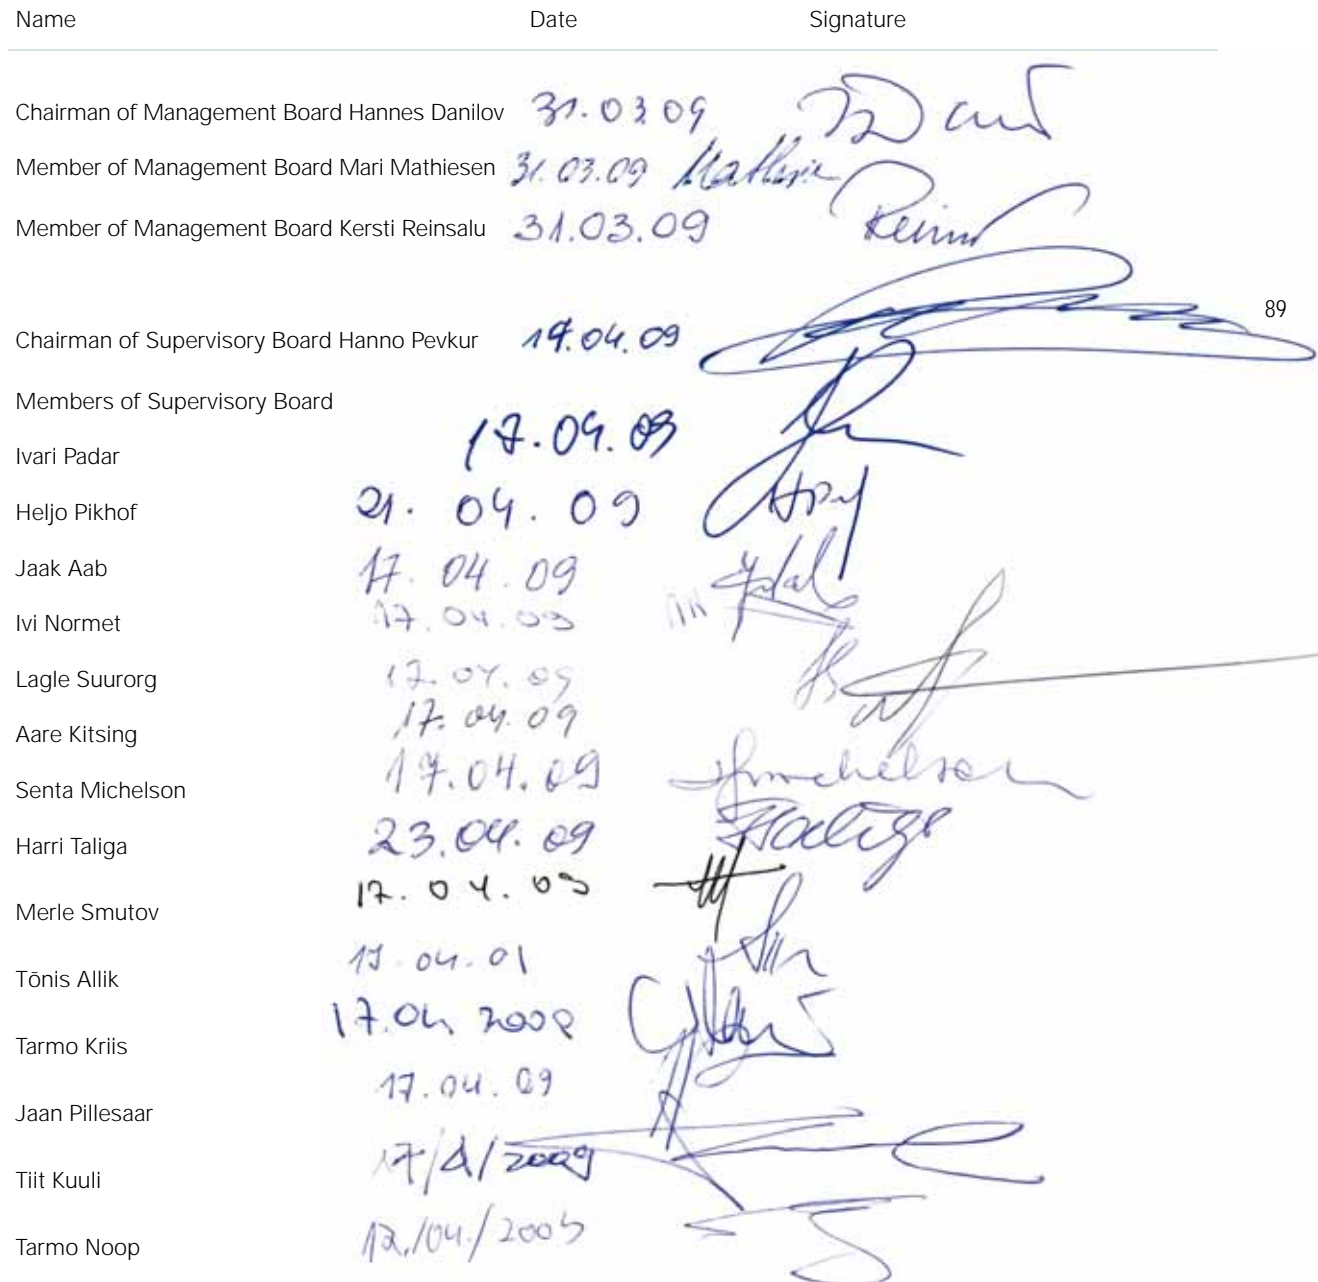 Name Date Signature
Chairman of Management Board Hannes Danilov 31.03.09
Member of Management Board Mari Mathiesen 31.03.09
Member of Management Board Kersti Reinsalu 31.03.09
89
Chairman of Supervisory Board Hanno Pevkur 17.04.09
Members of Supervisory Board
Ivari Padar 17.04.09
Heljo Pikhof 21.04.09
Jaak Aab 17.04.09
Ivi Normet 17.04.09
Lagle Suurorg 17.04.09
Aare Kitsing 17.04.09
Senta Michelson 17.04.09
Harri Taliga 23.04.09
Merle Smutov 17.04.09
Tõnis Allik
Tarmo Kriis 17.04 2009
Jaan Pillesaar 17.04.09
Tiit Kuuli 17/4/2009
Tarmo Noop